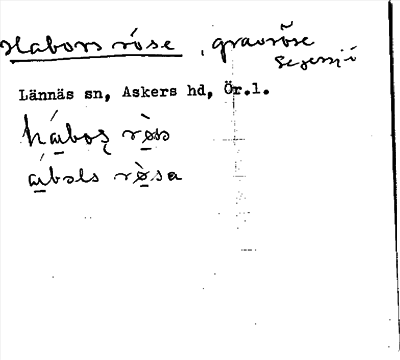 Habors röse, gravröse
Segersjö
Lännäs sn, Askers hd, Ör.l.
hábos̨ rø̀s
ábəls rø̀sa